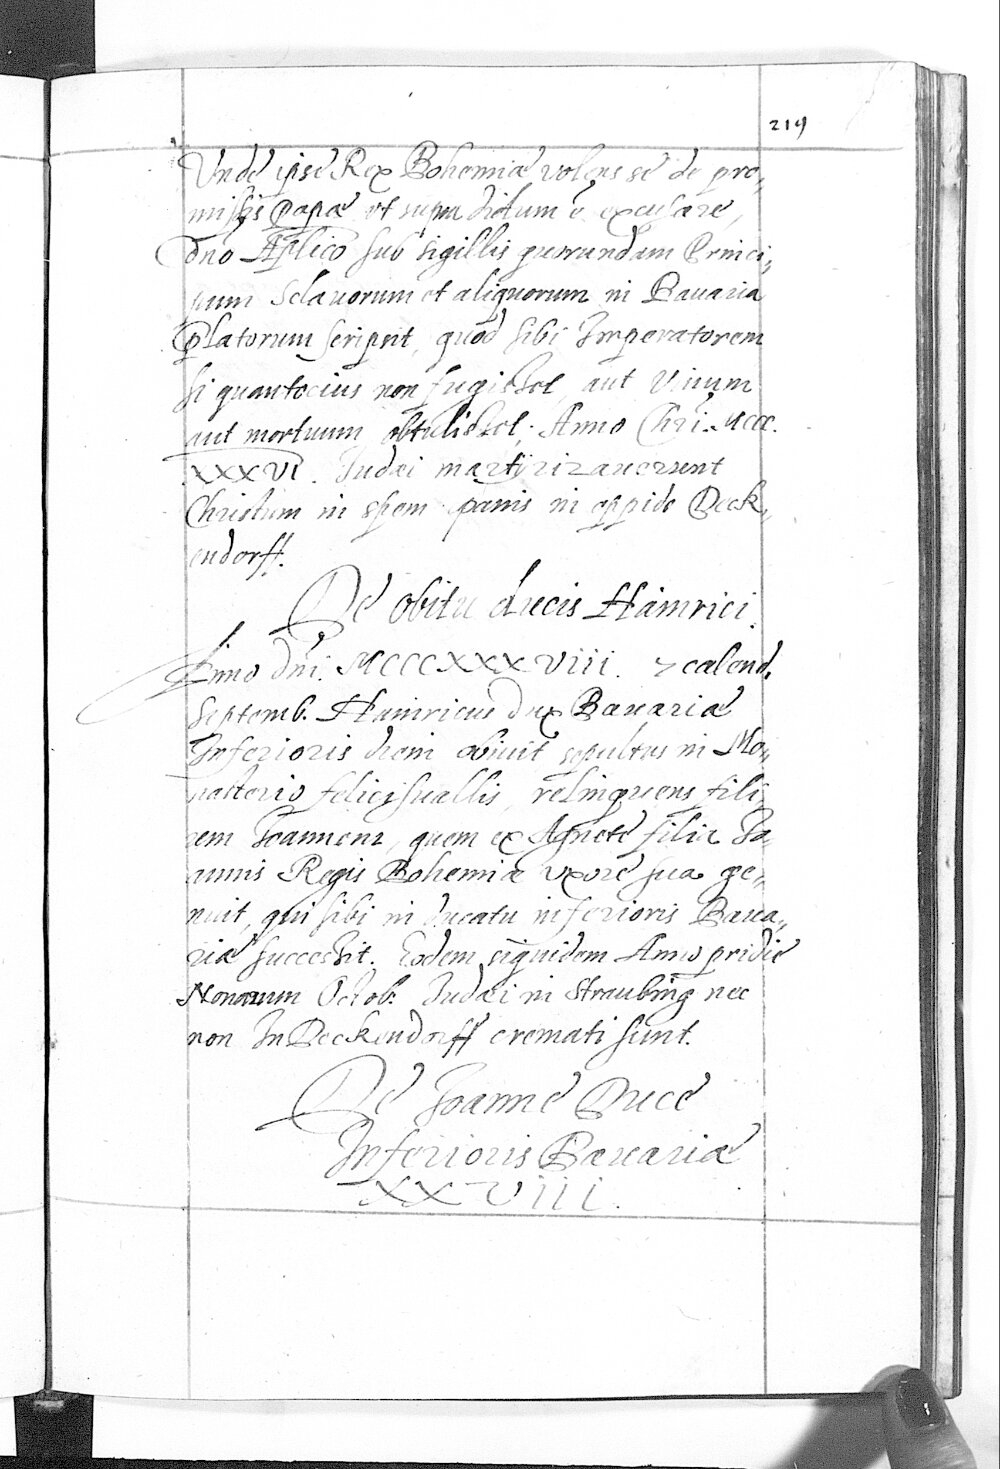 219
Unde ipse Rex Bohemiæ volens se de pro„
missis Papæ ut supra dictum ē excusare,
dno Aplico sub sigillis quorundam Princi„
pum Sclavorum et aliquorum in Bavaria
Plätorum scripsit, quod sibi Imperatorem
si quantocius non fugisset, aut vivum
aut mortuum obtulisset. Anno Chri. MCCC.
XXXVI. Judæi martirizaverunt
Christum in spem panis in oppido Deck„
endorff.
De obitu ducis Hainrici.
Anno dni. MCCCXXXVIII. 7 calend.
Septemb. Hainricus dux Bavariæ
Inferioris diem obiuit sepultus in Mo„
nasterio felicisuallis, relinquens fili„
um Joannem, quem ex Agnete filia Jo„
annis Regis Bohemiæ uxore sua ge„
nuit, qui sibi in ducatu inferioris Baua„
riæ successit. Eodem siquidem Anno pridie
Nonarum Octob. Judæi in Straubing nec
non In Deckendorff cremati sunt.
De Joanne Duce
Inferioris Bavariæ
XXVIII.